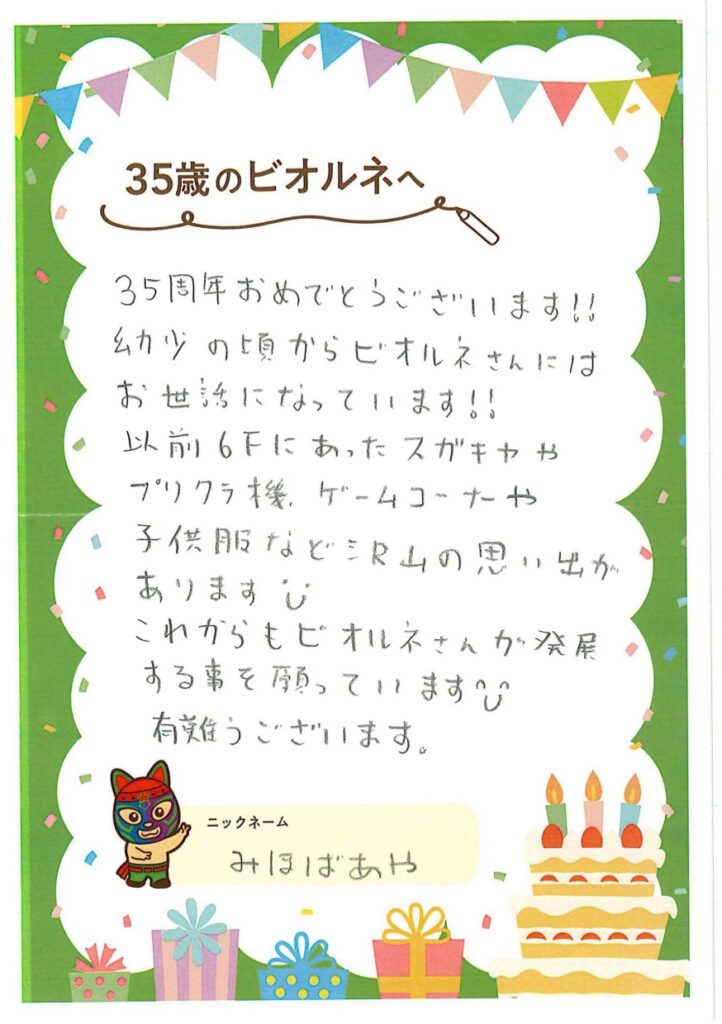 35歳のビオルネへ
35周年おめでとうございます!!
幼少の頃からビオルネさんには
お世話になっています!!
以前6Fにあったスガキヤや
プリクラ機、ゲームコーナーや
子供服など沢山の思い出が
あります
これからもビオルネさんが発展
する事を願っています
有難うございます。
ニックネーム
みほばあや